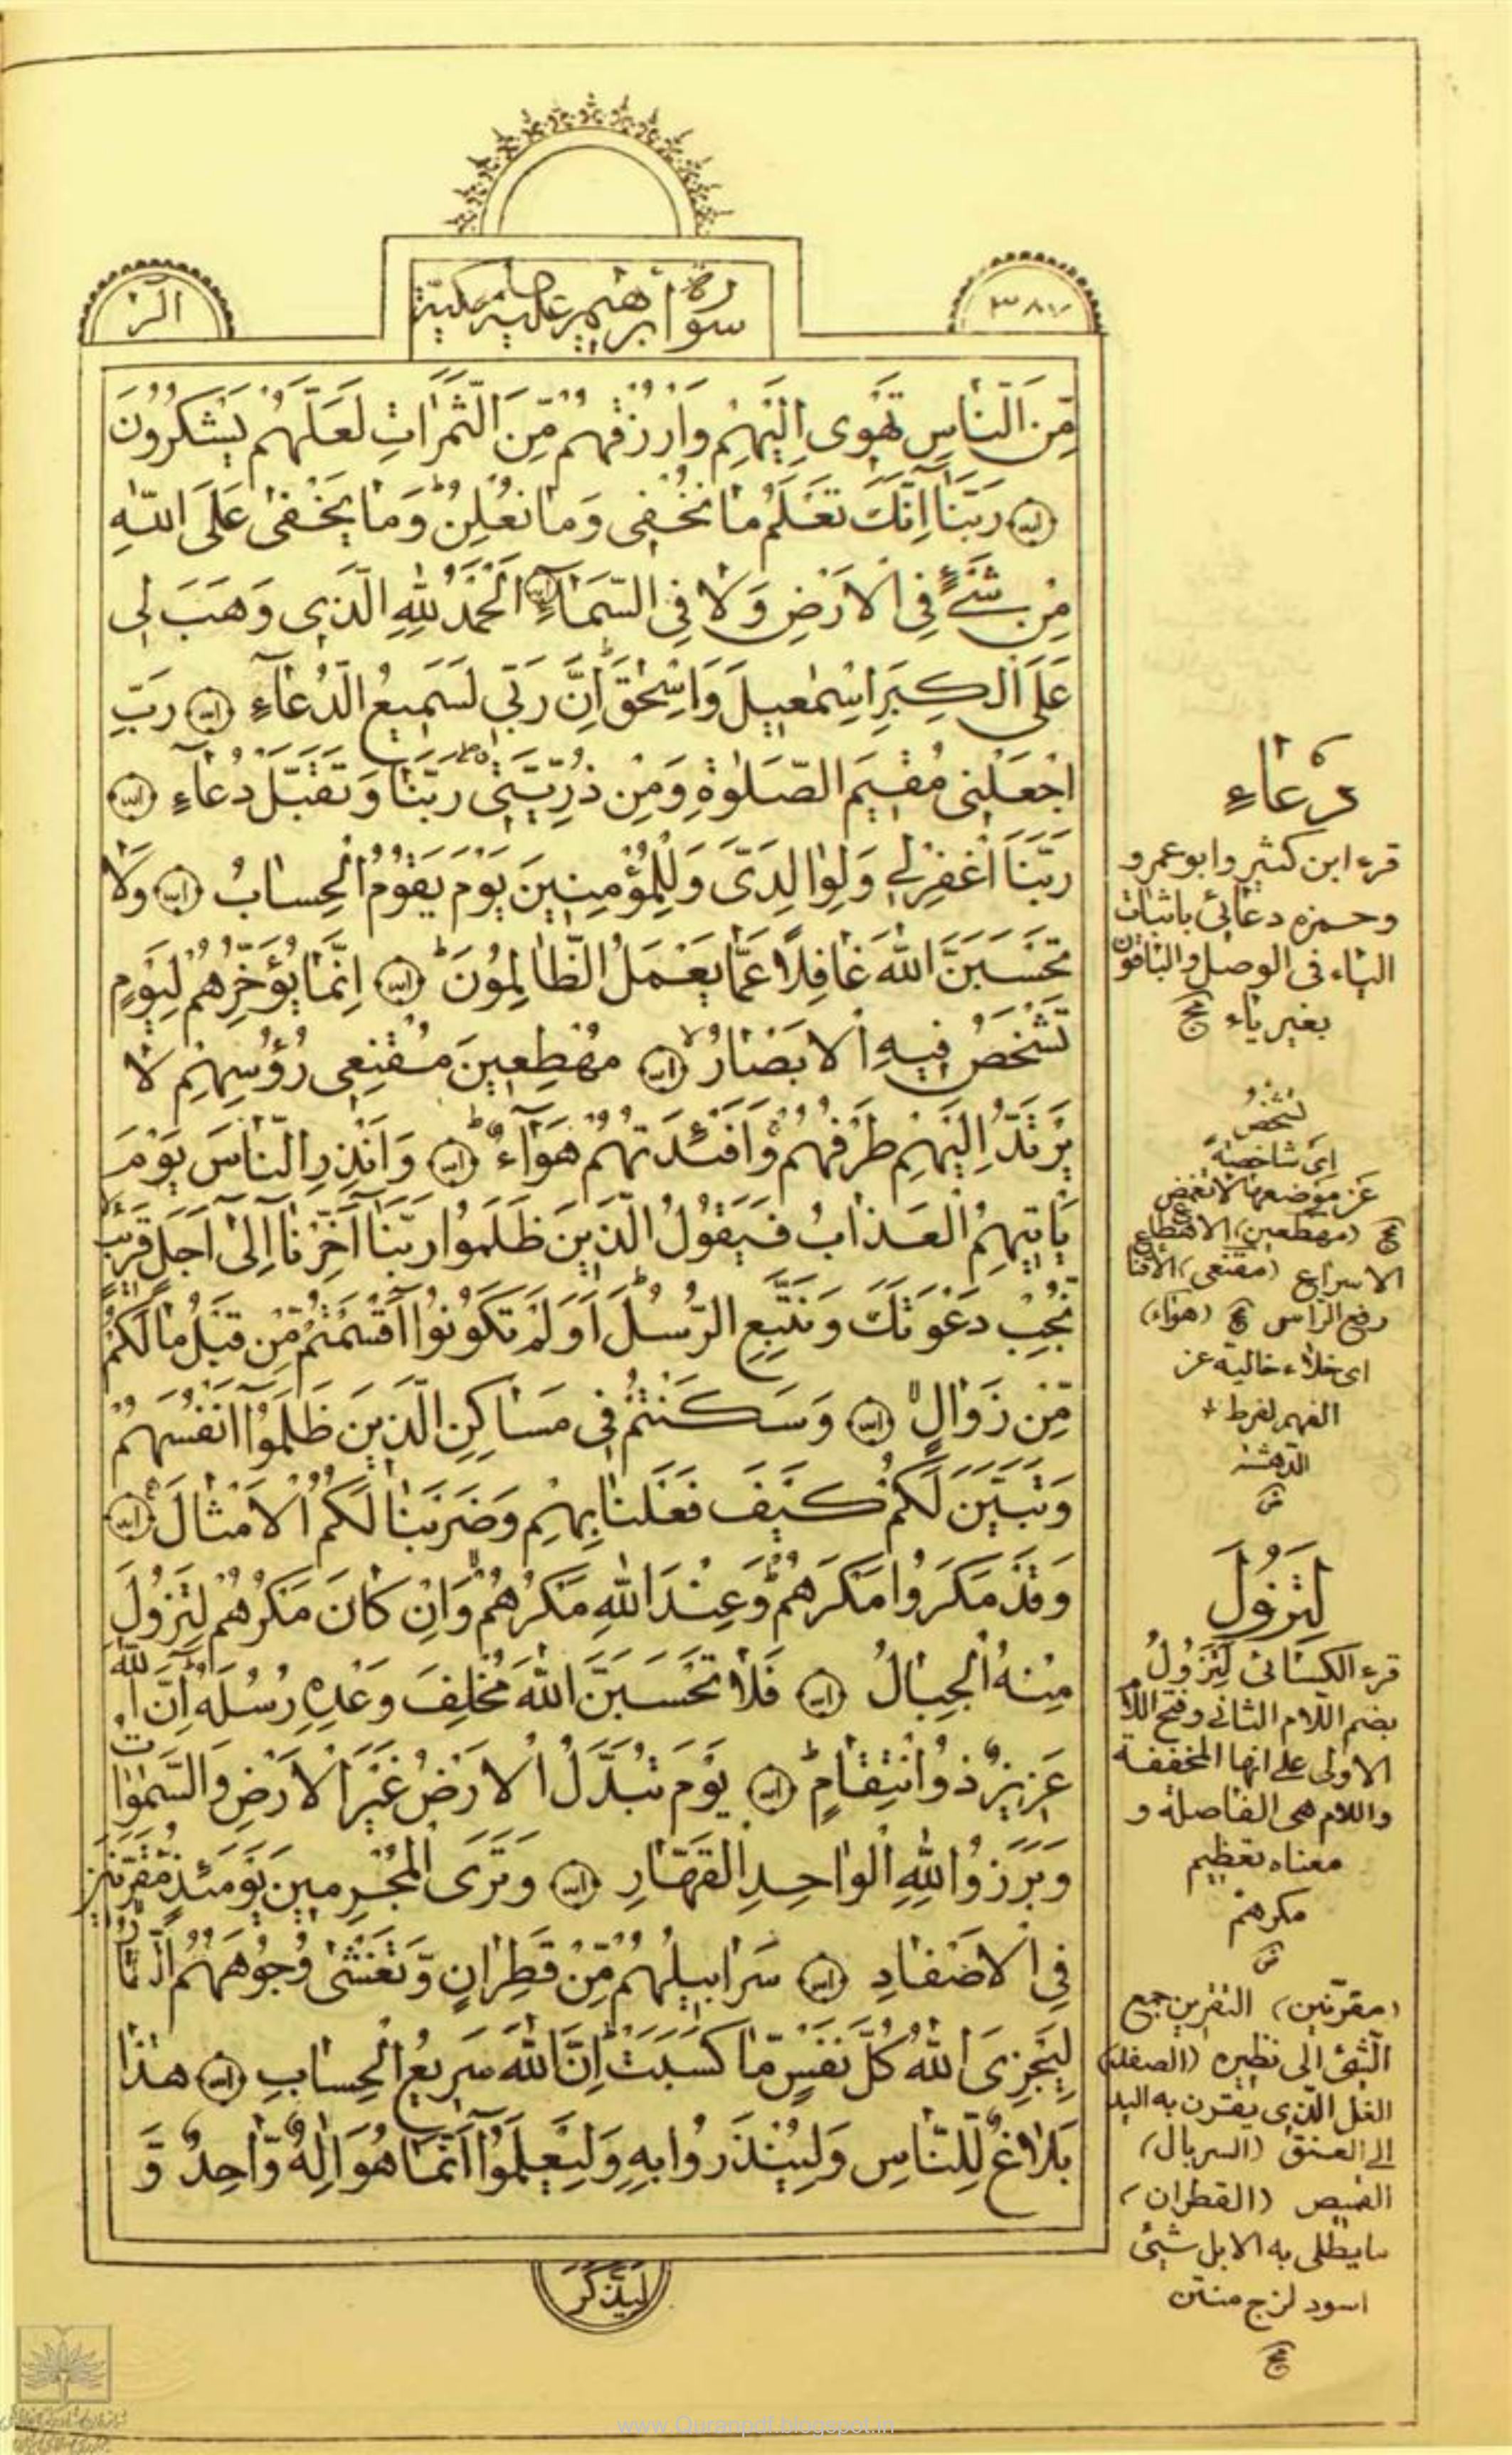 الۤرٰ
سورة ابرهيم عليه مكيّة
٣٨٧
مِّنَ النّاسِ تَهْوِى اِلَيْهِمْ وَارْزُقْهُمْ مِّنَ الثَّمَرٰاتِ لَعَلَّهُمْ يَشْكُرُونَ
رَبَّنٰا اِنَّكَ تَعْلَمُ مٰا نُخْفِى وَمٰا نُعْلِنُ وَمٰا يَخْفىٰ عَلَى اللّٰهِ
مِنْ شَىْءٍ فِى الْاَرْضِ وَلاٰ فِى السَّمٰاۤءِ اَلْحَمْدُ لِلّٰهِ الَّذِى وَهَبَ لِى
عَلَى الْكِبَرِ اِسْمٰعِيلَ وَاِسْحٰقَ اِنَّ رَبِّى لَسَمِيعُ الدُّعٰاۤءِ رَبِّ
اجْعَلْنِى مُقِيمَ الصَّلوٰةِ وَمِنْ ذُرِّيَّتِى رَبَّنٰا وَتَقَبَّلْ دُعٰاۤءِ
رَبَّنَا اغْفِرْلِى وَلِوٰالِدَىَّ وَلِلْمُؤْمِنِينَ يَوْمَ يَقُومُ الْحِسٰابُ وَلاٰ
تَحْسَبَنَّ اللّٰهَ غٰافِلًا عَمّٰا يَعْمَلُ الظّٰالِمُونَ اِنَّمٰا يُؤَخِّرُهُمْ لِيَوْمٍ
تَشْخَصُ فِيهِ الْاَبْصٰارُ مُهْطِعِينَ مُقْنِعِى رُؤُسِهِمْ لاٰ
يَرْتَدُّ اِلَيْهِمْ طَرْفُهُمْ وَاَفْئِدَتُهُمْ هَوٰاۤءٌ وَاَنْذِرِ النّٰاسَ يَوْمَ
يَاْتِيهِمُ الْعَذٰابُ فَيَقُولُ الَّذِينَ ظَلَمُوا رَبَّنٰا اَخِّرْنٰا اِلىٰ اَجَلٍ قَرِيبٍ
نُجِبْ دَعْوَتَكَ وَنَتَّبِعِ الرُّسُلَ اَوَلَمْ تَكُونُوا اَقْسَمْتُمْ مِّنْ قَبْلُ مٰالَكُمْ
مِّنْ زَوٰالٍ وَسَكَنْتُمْ فِى مَسٰاكِنِ الَّذِينَ ظَلَمُوا اَنْفُسَهُمْ
وَتَبَيَّنَ لَكُمْ كَيْفَ فَعَلْنٰا بِهِمْ وَضَرَبْنٰا لَكُمُ الْاَمْثٰالَ
وَقَدْ مَكَرُوا مَكْرَهُمْ وَعِنْدَ اللّٰهِ مَكْرُهُمْ وَاِنْ كٰانَ مَكْرُهُمْ لِتَزُولَ
مِنْهُ الْجِبٰالُ فَلاٰ تَحْسَبَنَّ اللّٰهَ مُخْلِفَ وَعْدِهِ رُسُلَهُ اِنَّ اللّٰهَ
عَزِيزٌ ذُو انْتِقٰامٍ يَوْمَ تُبَدَّلُ الْاَرْضُ غَيْرَ الْاَرْضِ وَالسَّمٰوٰاتُ
وَبَرَزُوا لِلّٰهِ الْوٰاحِدِ الْقَهّٰارِ وَتَرَى الْمُجْرِمِينَ يَوْمَئِذٍ مُّقَرَّنِينَ
فِى الْاَصْفٰادِ سَرٰابِيلُهُمْ مِّنْ قَطِرٰانٍ وَّتَغْشىٰ وُجُوهَهُمُ النّٰارُ
لِيَجْزِىَ اللّٰهُ كُلَّ نَفْسٍ مّٰا كَسَبَتْ اِنَّ اللّٰهَ سَرِيعُ الْحِسٰابِ هٰذٰا
بَلاٰغٌ لِلنّٰاسِ وَلِيُنْذَرُوا بِهِ وَلِيَعْلَمُوا اَنَّمٰا هُوَ اِلٰهٌ وّٰاحِدٌ وَّ
لِيَذَّكَّرَ
دعٰاءِ
قرء ابن كثير وابو عمرو
وحمزه دعائى باثبات
الياء فى الوصل والباقون
بغير ياء مج
تشخص
اى شاخصة
عن موضعها لا تغمض
مج (مهطعين) الاهطاع
الاسراع (مقنعى) الاقناع
رفع الراس مج (هوٰاء)
اى خلاء خالية عن
الفهم لفرط
الدهشة
ض
لِتَزُولَ
قرء الكسائى لَتَزُولُ
بضم اللام الثانى وفتح اللام
الاولى على انها المخففة
واللام هى الفاصلة و
معناه تعظيم
مكرهم
ض
(مقرّنين) التقرين جمع
الشئ الى نظيره (الصفد)
الغل الذى يقرن به اليد
الى العنق (السربال)
القميص (القطران)
ما يطلى به الابل شئ
اسود لزج منتن
مج
www.Quranpdf.blogspot.in